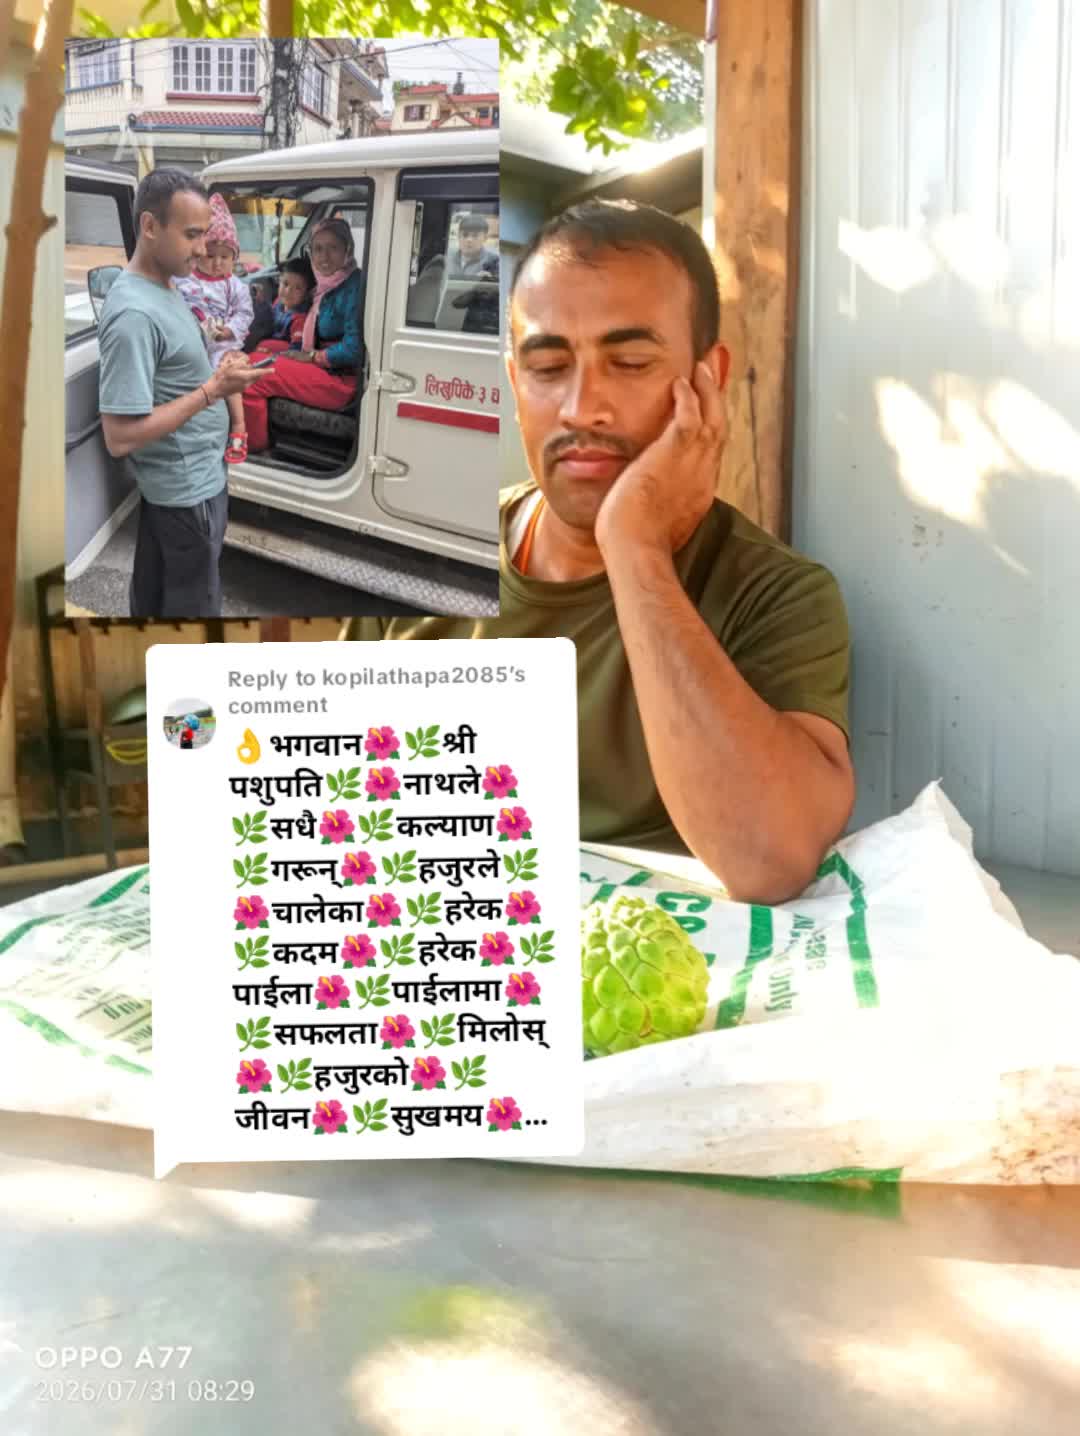 लिखुपिके-३
Reply to kopilathapa2085's
comment
👌भगवान🌺🌿श्री
पशुपति🌿🌺नाथले🌺
🌿सधै🌺🌿कल्याण🌺
🌿गरून्🌺🌿हजुरले🌿
🌺चालेका🌺🌿हरेक🌺
🌿कदम🌺🌿हरेक🌺🌿
पाईला🌺🌿पाईलामा🌺
🌿सफलता🌺🌿मिलोस्
🌺🌿हजुरको🌺🌿
जीवन🌺🌿सुखमय🌺...
Only
OPPO A77
2026/07/31 08:29